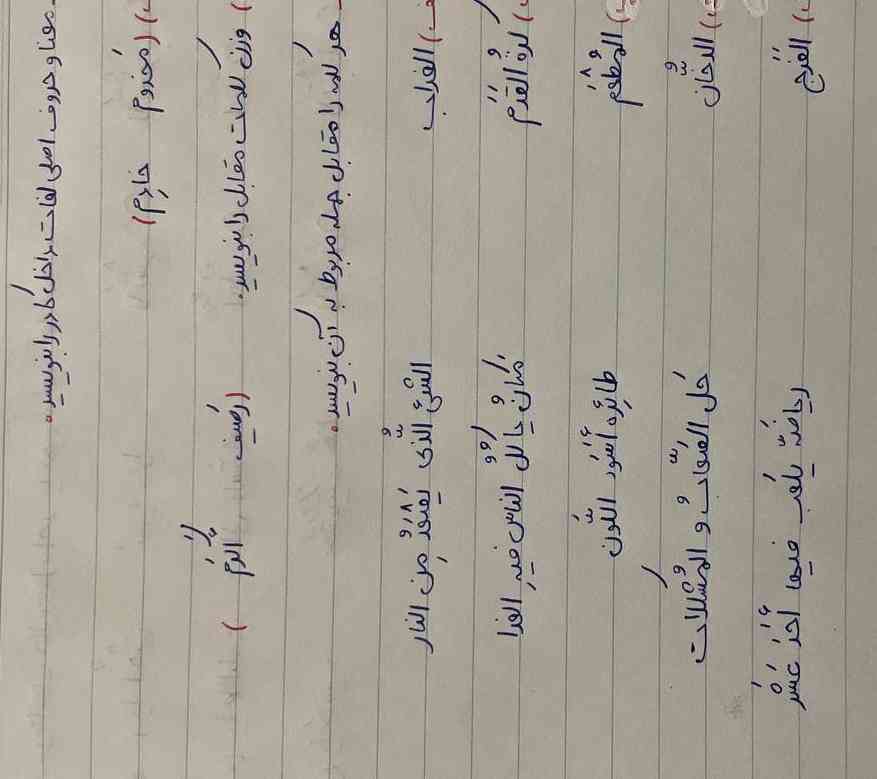 معنا و حروف اصلی لغات داخل کادر را بنویسید.
(مَخدوم خادِم)
وزن کلمات مقابل را بنویسید.
هر کلمه را مقابل جمله مربوط به آن بنویسید.
الغراب الشیءُ الّذی یَصْعَدُ مِن النار
کرةُ القَدَم مکانٌ یأکُلُ الناسُ فیهِ الغذا
المَطْعَم طائِرٌ أسوَدُ اللَّون
الدُّخان حَل الصعاب و المشکلات
الفَرَج ریاضَةٌ یَلعَبُ فیها أحَدَ عَشَرَ